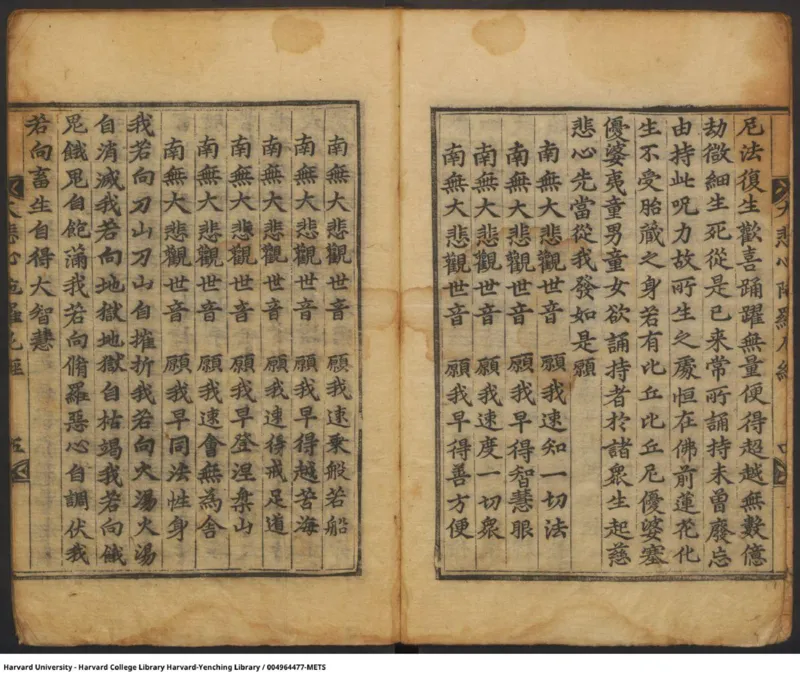 尼法復生歡喜踊躍無量便得超越無數億
劫微細生死從是已來常所誦持未曾廢忘
由持此呪力故所生之處恒在佛前蓮花化
生不受胎藏之身若有比丘比丘尼優婆塞
優婆夷童男童女欲誦持者於諸衆生起慈
悲心先當從我發如是願
南無大悲觀世音 願我速知一切法
南無大悲觀世音 願我早得智慧眼
南無大悲觀世音 願我速度一切衆
南無大悲觀世音 願我早得善方便
南無大悲觀世音 願我速乘般若船
南無大悲觀世音 願我早得越苦海
南無大悲觀世音 願我速得戒足道
南無大悲觀世音 願我早登涅槃山
南無大悲觀世音 願我速會無為舍
南無大悲觀世音 願我早同法性身
我若向刀山刀山自摧折我若向火湯火湯
自消滅我若向地獄地獄自枯竭我若向餓
鬼餓鬼自飽滿我若向脩羅惡心自調伏我
若向畜生自得大智慧
大悲心陀羅尼經
Harvard University - Harvard College Library Harvard-Yenching Library / 004964477-METS